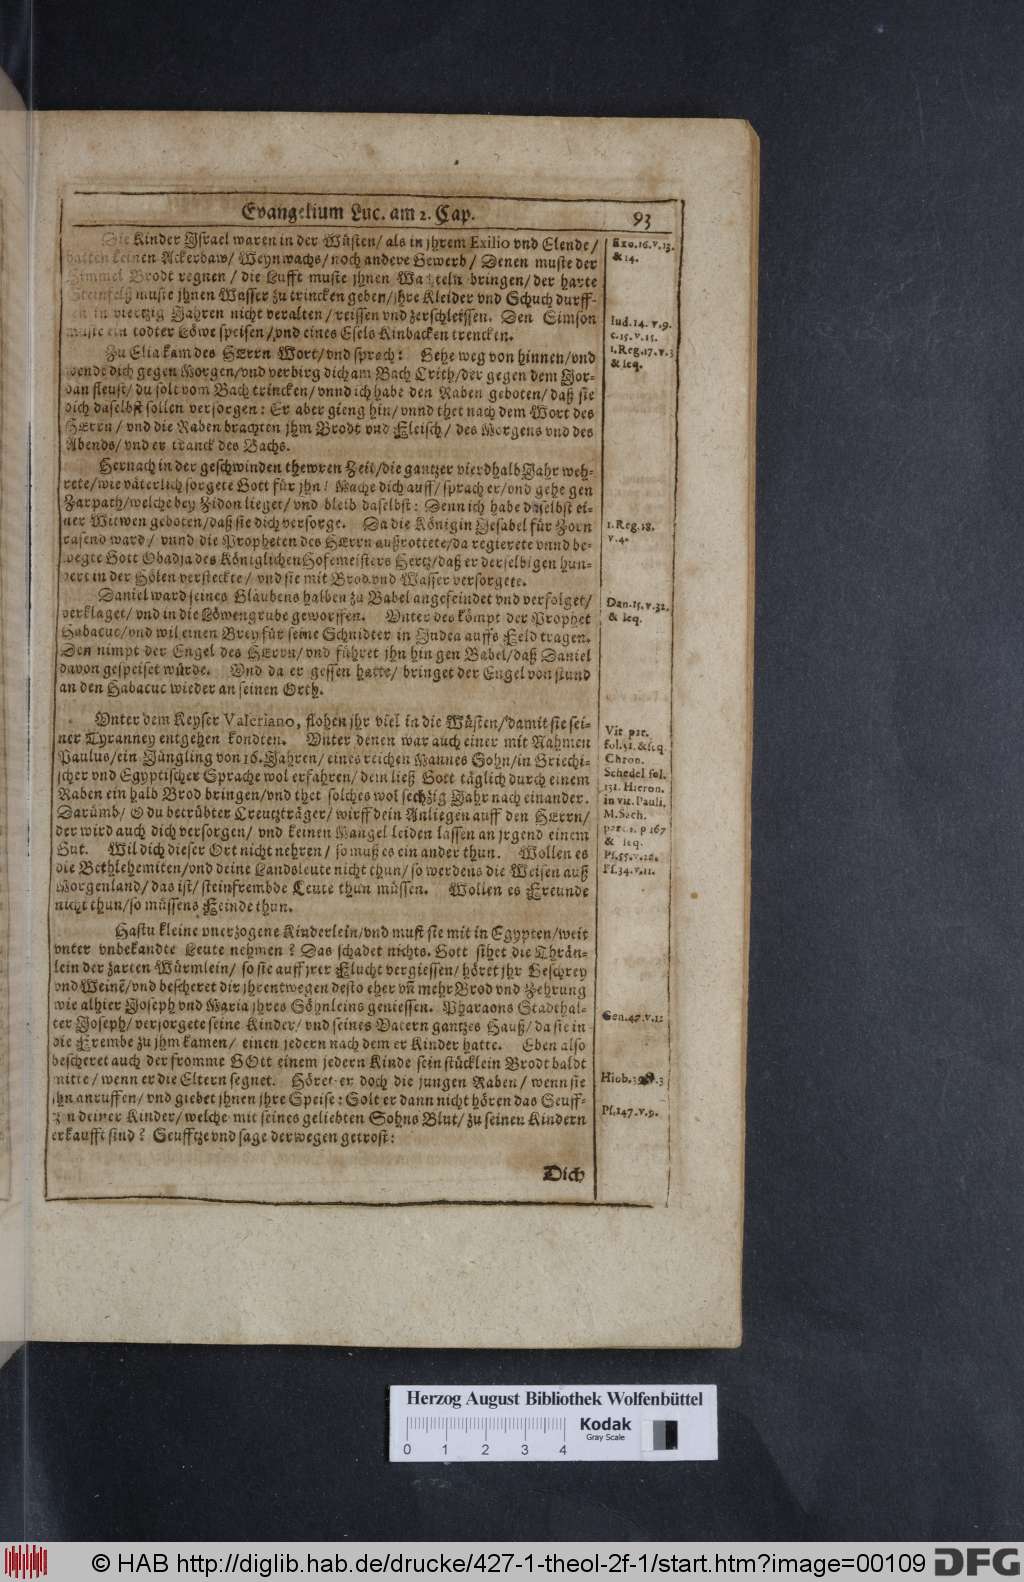 Evangelium Luc. am 2. Cap.
93
Die Kinder Jsrael waren in der Wüsten/ als in jhrem Exilio vnd Elende/
hatten keinen Ackerbaw/ Weynwachs/ noch andere Gewerb/ Denen muste der
Himmel Brodt regnen/ die Lufft muste jhnen Wachteln bringen/ der harte
Steinfelß muste jhnen Wasser zu trincken geben/ jhre Kleider vnd Schuch durff-
ten in viertzig Jahren nicht veralten/ reissen vnd zerschleissen. Den Simson
muste ein todter Löwe speisen/ vnd eines Esels Kinbacken trencken.
Zu Elia kam des HErrn Wort/ vnd sprach: Gehe weg von hinnen/ vnd
wende dich gegen Morgen/ vnd verbirg dich am Bach Crith/ der gegen dem Jor-
dan fleust/ du solt vom Bach trincken/ vnnd ich habe den Raben geboten/ daß sie
dich daselbst sollen versorgen: Er aber gieng hin/ vnnd thet nach dem Wort des
HErrn/ vnd die Raben brachten jhm Brodt vnd Fleisch/ des Morgens vnd des
Abends/ vnd er tranck des Bachs.
Hernach in der geschwinden thewren Zeit/ die gantzer vierdhalb Jahr weh-
rete/ wie väterlich sorgete Gott für jhn! Mache dich auff/ sprach er/ vnd gehe gen
Zarpath/ welche bey Zidon lieget/ vnd bleib daselbst: Denn ich habe daselbst ei-
ner Witwen geboten/ daß sie dich versorge. Da die Königin Jesabel für Zorn
rasend ward/ vnnd die Propheten des HErrn außrottete/ da regierete vnnd be-
wegte Gott Obadja des Königlichen Hofemeisters Hertz/ daß er derselbigen hun-
dert in der Hölen versteckte/ vnd sie mit Brod vnd Wasser versorgete.
Daniel ward seines Glaubens halben zu Babel angefeindet vnd verfolget/
verklaget/ vnd in die Löwengrube geworffen. Vnter des kömpt der Prophet
Habacuc/ vnd wil einen Brey für seine Schnidter in Judea auffs Feld tragen.
Den nimpt der Engel des HErrn/ vnd führet jhn hin gen Babel/ daß Daniel
davon gespeiset würde. Vnd da er gessen hatte/ bringet der Engel von stund
an den Habacuc wieder an seinen Orth.
Vnter dem Keyser Valeriano, flohen jhr viel in die Wüsten/ damit sie sei-
ner Tyranney entgehen kondten. Vnter denen war auch einer mit Nahmen
Paulus/ ein Jüngling von 16. Jahren/ eines reichen Mannes Sohn/ in Griechi-
scher vnd Egyptischer Sprache wol erfahren/ dem ließ Gott täglich durch einem
Raben ein halb Brod bringen/ vnd thet solches wol sechzig Jahr nach einander.
Darümb/ O du betrübter Creutzträger/ wirff dein Anliegen auff den HErrn/
der wird auch dich versorgen/ vnd keinen Mangel leiden lassen an jrgend einem
Gut. Wil dich dieser Ort nicht nehren/ so muß es ein ander thun. Wollen es
die Bethlehemiten/ vnd deine Landsleute nicht thun/ so werdens die Weisen auß
Morgenland/ das ist/ steinfrembde Leute thun müssen. Wollen es Freunde
nicht thun/ so müssens Feinde thun.
Hastu kleine vnerzogene Kinderlein/ vnd must sie mit in Egypten/ weit
vnter vnbekandte Leute nehmen? Das schadet nichts. Gott sihet die Thrän-
lein der zarten Würmlein/ so sie auff jrer Flucht vergiessen/ höret jhr Geschrey
vnd Weinē/ vnd bescheret dir jhrentwegen desto eher vñ mehr Brod vnd Zehrung
wie alhier Joseph vnd Maria jhres Söhnleins geniessen. Pharaons Stadthal-
ter Joseph/ versorgete seine Kinder/ vnd seines Vatern gantzes Hauß/ da sie in
die Frembe zu jhm kamen/ einen jedern nach dem er Kinder hatte. Eben also
bescheret auch der fromme GOtt einem jedern Kinde sein stücklein Brodt baldt
mitte/ wenn er die Eltern segnet. Höret er doch die jungen Raben/ wenn sie
jhn anruffen/ vnd giebet jhnen jhre Speise: Solt er dann nicht hören das Seuff-
tzen deiner Kinder/ welche mit seines geliebten Sohns Blut/ zu seinen Kindern
erkaufft sind? Seufftze vnd sage derwegen getrost:
Dich
Exo. 16. v. 13.
& 14.
Iud. 14. v. 9.
c. 15. v. 15.
1. Reg. 17. v. 3
& seq.
1. Reg. 18.
v. 4.
Dan. 15. v. 32.
& seq.
Vit. pat.
fol. 51. & seq.
Chron.
Schedel fol.
131. Hieron.
in vit. Pauli,
M. Sach.
part. 1. p 167
& seq.
Ps. 55. v. 12.
Ps. 34. v. 11.
Gen. 47. v. 12
Hiob.
Ps. 147. v. 9.
Herzog August Bibliothek Wolfenbüttel
0 1 2 3 4
Kodak
Gray Scale
© HAB http://diglib.hab.de/drucke/427-1-theol-2f-1/start.htm?image=00109
DFG